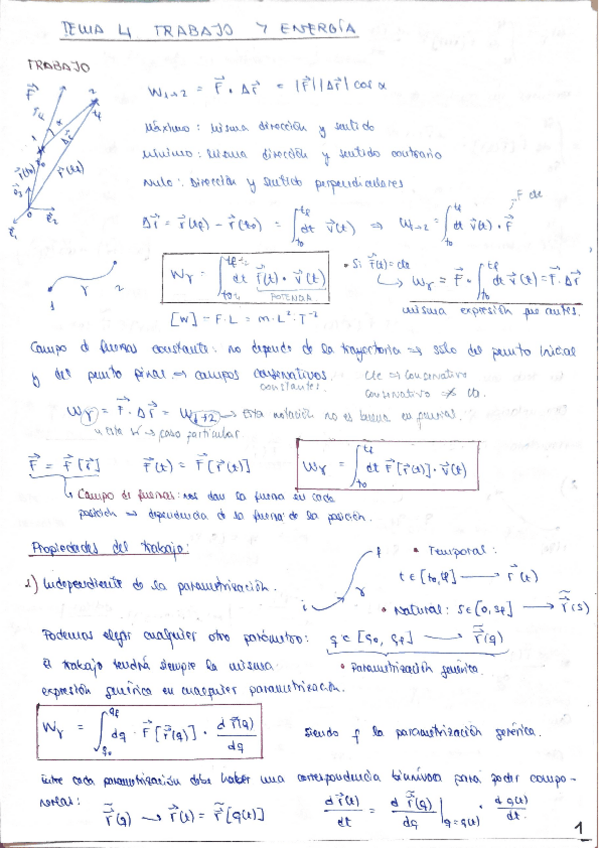 TEMA 4 TRABAJO Y ENERGÍA
TRABAJO
W₁→₂ = F⃗ · Δr⃗ = |F⃗||Δr⃗| cos α
Máximo: misma dirección y sentido
Mínimo: misma dirección y sentido contrario
Nulo: Dirección y sentido perpendiculares
F cte
Δr⃗ = r⃗(tf) − r⃗(t₀) = ∫_{t₀}^{tf} dt v⃗(t) ⇒ W₁→₂ = ∫_{t₀}^{tf} dt v⃗(t) · F⃗
1 γ 2
Wγ = ∫ dt F⃗(t) · v⃗(t)
POTENCIA
• Si F⃗(t) = cte
↳ Wγ = F⃗ · ∫_{t₀}^{tf} dt v⃗(t) = F⃗ · Δr⃗
misma expresión que antes.
[W] = F·L = m·L²·T⁻²
Campo de fuerzas constante: no depende de la trayectoria ⇒ sólo del punto inicial
y del punto final ⇒ campos conservativos.
constantes.
Cte ⇒ Conservativo
Conservativo ⇏ Cte.
Wγ = F⃗ · Δr⃗ = W₁→₂ → Esta notación no es buena en fuerzas.
→ caso particular
F⃗ = F⃗[r⃗] F⃗(t) = F⃗[r⃗(t)]
Wγ = ∫_{t₀}^{tf} dt F⃗[r⃗(t)] · v⃗(t)
↳ Campo de fuerzas: nos dan la fuerza en cada
posición ⇒ dependencia de la fuerza de la posición.
Propiedades del trabajo:
1) Independiente de la parametrización.
i γ f
• Temporal:
t ∈ [t₀, tf] → r⃗(t)
• Natural: s ∈ [0, sf] → r̃⃗(s)
Podemos elegir cualquier otro parámetro: q ∈ [q₀, qf] → r̃⃗(q)
El trabajo tendrá siempre la misma
• Parametrización genérica.
expresión genérica en cualquier parametrización.
Wγ = ∫_{q₀}^{qf} dq · F⃗[r̃⃗(q)] · d r̃⃗(q)/dq
Siendo q la parametrización genérica.
Entre cada parametrización debe haber una correspondencia biunívoca para poder compo-
nerlas:
r̃⃗(q) → r⃗(t) = r̃⃗[q(t)]
d r⃗(t)/dt = d r̃⃗(q)/dq |q=q(t) · d q(t)/dt.
1